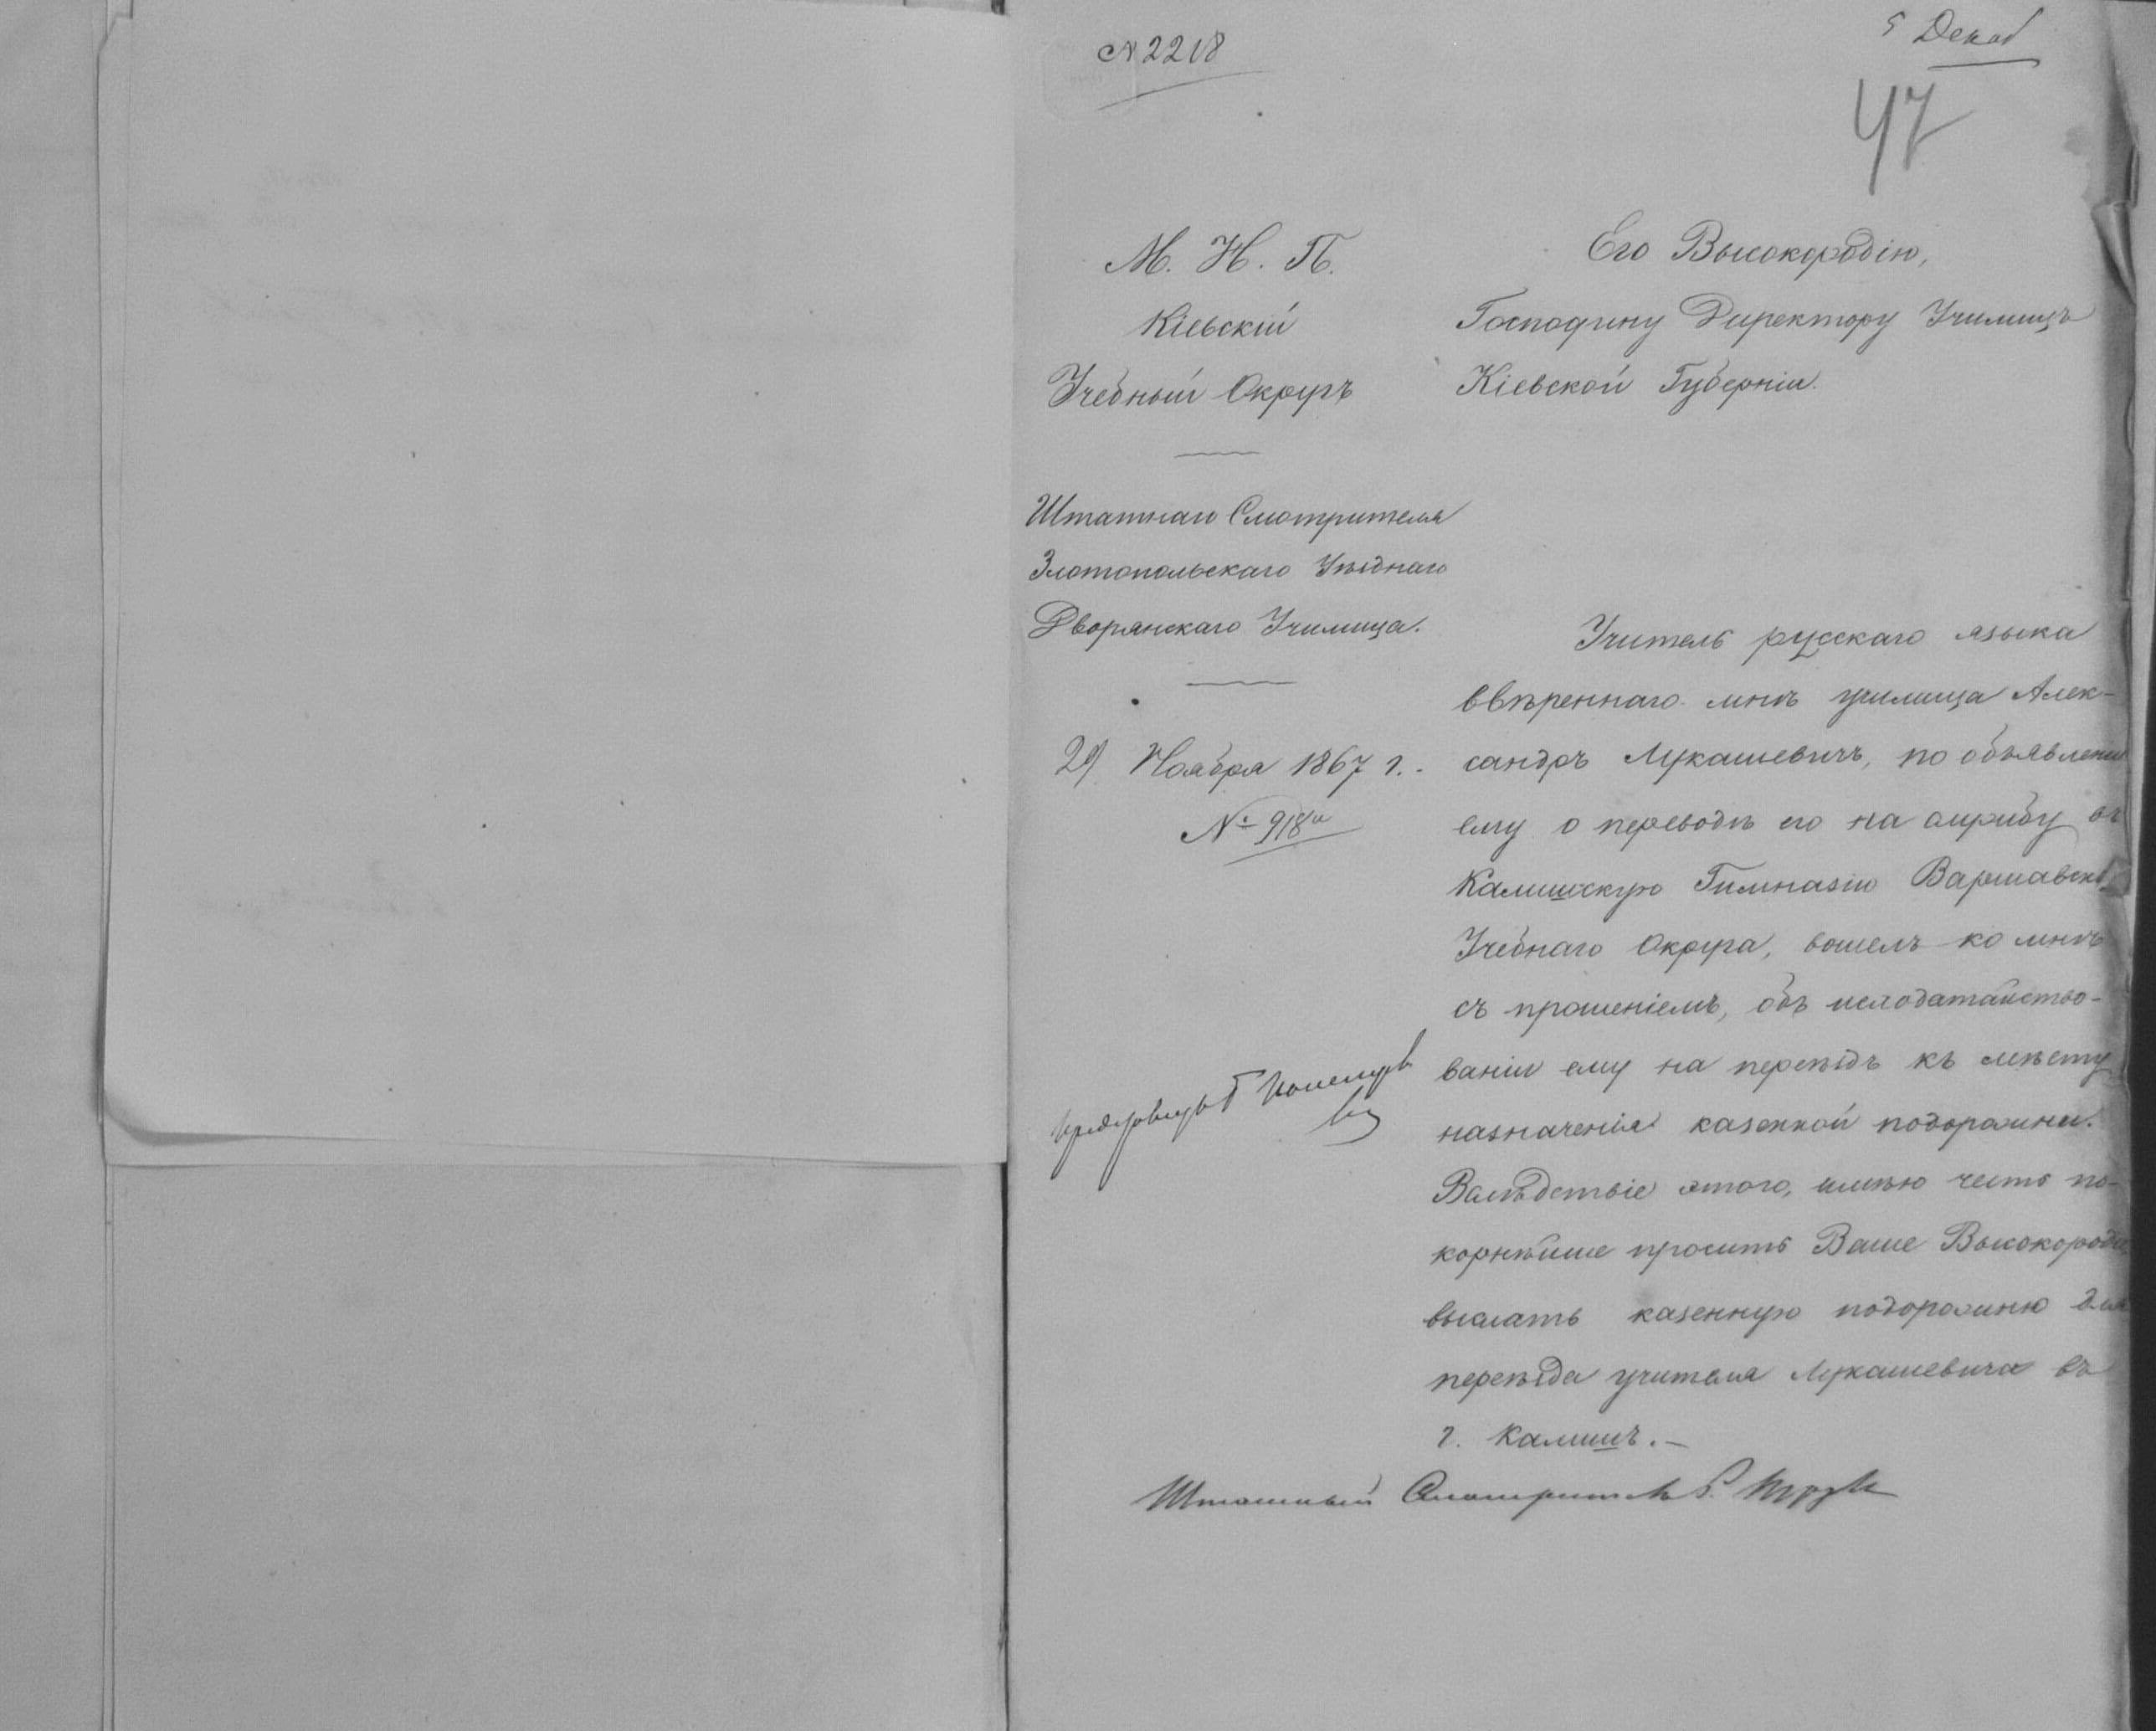 № 2218
5 Декаб
47
М. Н. П.
Кіевскій
Учебный Округъ
Штатнаго Смотрителя
Златопольскаго Уѣзднаго
Дворянскаго Училища.
29 Ноября 1867 г.
№ 918
Его Высокородію,
Господину Директору Училищъ
Кіевской Губерніи.
Учитель русскаго языка
ввѣреннаго мнѣ училища Алек-
сандръ Лукашевичъ, по объявленіи
ему о переводѣ его на службу въ
Калишскую Гимназію Варшавск.
Учебнаго Округа, вошелъ ко мнѣ
съ прошеніемъ, объ исходатайство-
ваніи ему на переѣздъ къ мѣсту
назначенія казенной подорожни.
Вслѣдствіе этого, имѣю честь по-
корнѣйше просить Ваше Высокородіе
выслать казенную подорожню для
переѣзда учителя Лукашевича въ
г. Калишъ.—
Штатный Смотритель